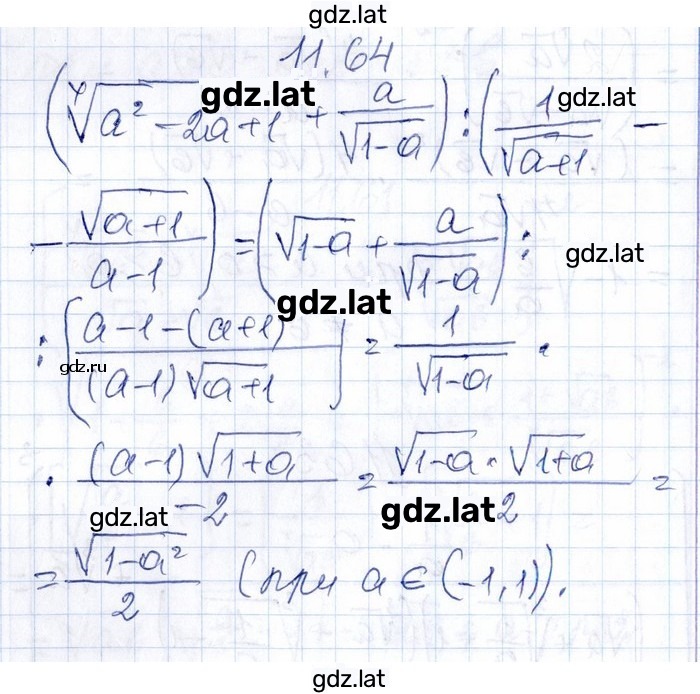 gdz.lat
11.64
(∜(a² - 2a + 1) + a/√(1-a)) : (1/√(a+1) -
gdz.lat gdz.lat
- √(a+1)/(a-1)) = (√(1-a) + a/√(1-a)) :
gdz.lat
gdz.lat
: [(a-1-(a+1))/((a-1)√(a+1))] = 1/√(1-a) ·
gdz.ru
· (a-1)√(1+a)/-2 = √(1-a)·√(1+a)/2 =
gdz.lat gdz.lat
= √(1-a²)/2 (при a ∈ (-1,1)).
gdz.lat